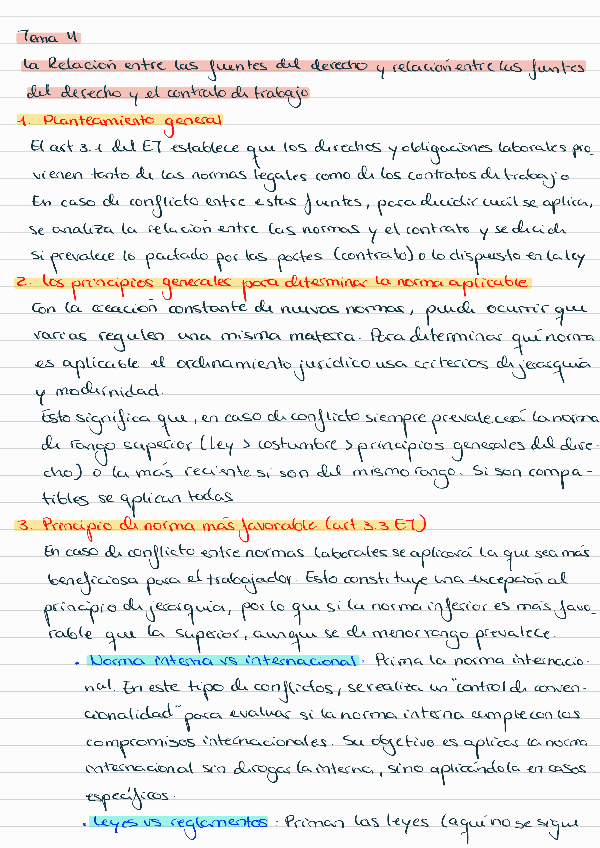 Tema 4
La Relación entre las fuentes del derecho y relación entre las fuentes
del derecho y el contrato de trabajo
1. Planteamiento general
El art 3.1 del ET establece que los derechos y obligaciones laborales pro-
vienen tanto de las normas legales como de los contratos de trabajo
En caso de conflicto entre estas fuentes, para decidir cuál se aplica,
se analiza la relación entre las normas y el contrato y se decide
si prevalece lo pactado por las partes (contrato) o lo dispuesto en la ley
2. Los principios generales para determinar la norma aplicable
Con la creación constante de nuevas normas, puede ocurrir que
varias regulen una misma materia. Para determinar qué norma
es aplicable el ordenamiento jurídico usa criterios de jerarquía
y modernidad.
Esto significa que, en caso de conflicto siempre prevalecerá la norma
de rango superior (ley > costumbre > principios generales del dere-
cho) o la más reciente si son del mismo rango. Si son compa-
tibles se aplican todas
3. Principio de norma más favorable (art 3.3 ET)
En caso de conflicto entre normas laborales se aplicará la que sea más
beneficiosa para el trabajador. Esto constituye una excepción al
principio de jerarquía, por lo que si la norma inferior es más favo-
rable que la superior, aunque se de menor rango prevalece.
• Norma interna vs internacional: Prima la norma internacio-
nal. En este tipo de conflictos, se realiza un "control de conven-
cionalidad" para evaluar si la norma interna cumple con los
compromisos internacionales. Su objetivo es aplicar la norma
internacional sin derogar la interna, sino aplicándola en casos
específicos.
• Leyes vs reglamentos: Priman las leyes (aquí no se sigue